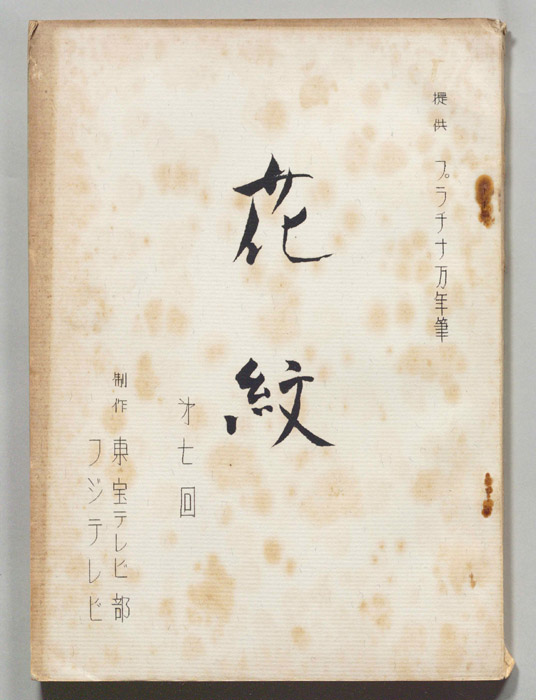 提供　プラチナ万年筆
花紋
才七回
制作　東宝テレビ部
フジテレビ